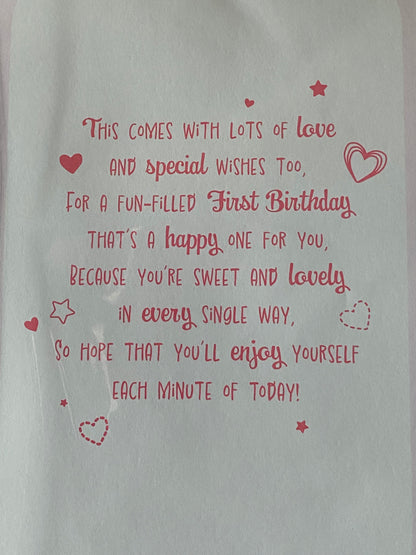 This comes with lots of love
and special wishes too,
For a fun-filled First Birthday
that's a happy one for you,
Because you're sweet and lovely
in every single way,
So hope that you'll enjoy yourself
each minute of today!